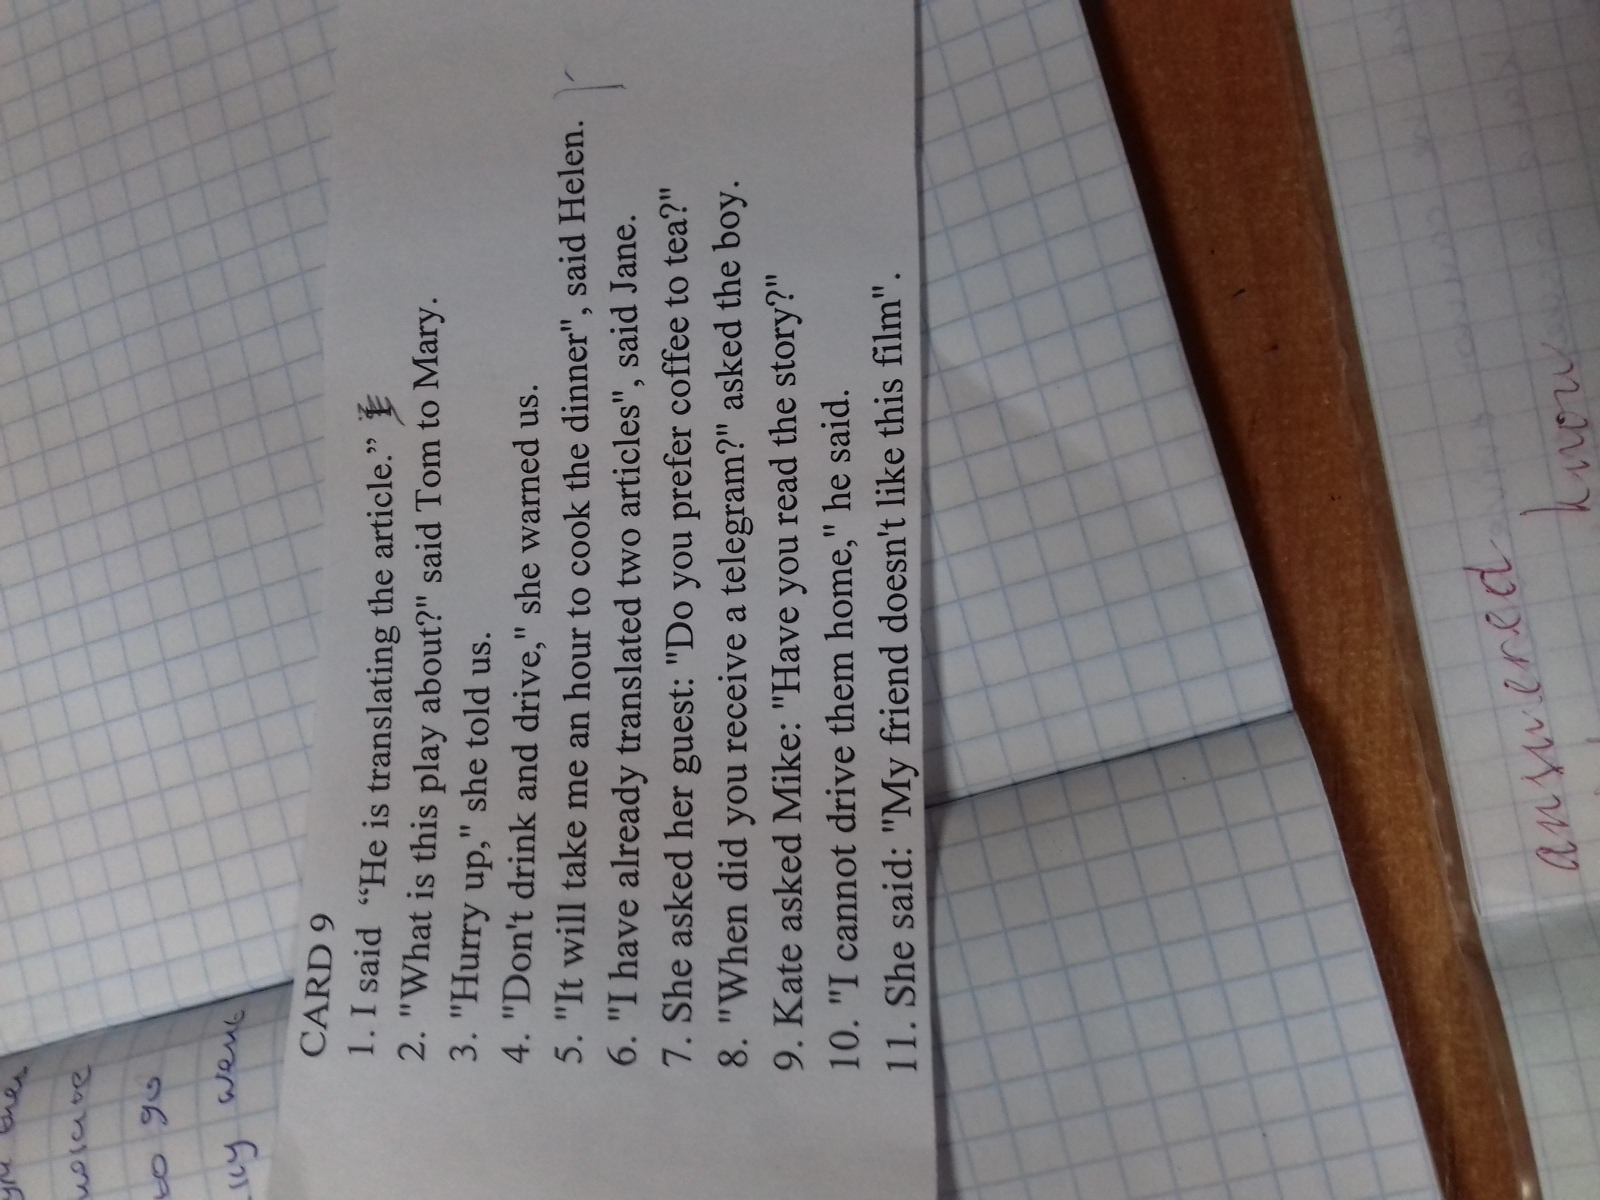 CARD 9
1. I said “He is translating the article.”
2. "What is this play about?" said Tom to Mary.
3. "Hurry up," she told us.
4. "Don't drink and drive," she warned us.
5. "It will take me an hour to cook the dinner", said Helen.
6. "I have already translated two articles", said Jane.
7. She asked her guest: "Do you prefer coffee to tea?"
8. "When did you receive a telegram?" asked the boy.
9. Kate asked Mike: "Have you read the story?"
10. "I cannot drive them home," he said.
11. She said: "My friend doesn't like this film".
go
answered know